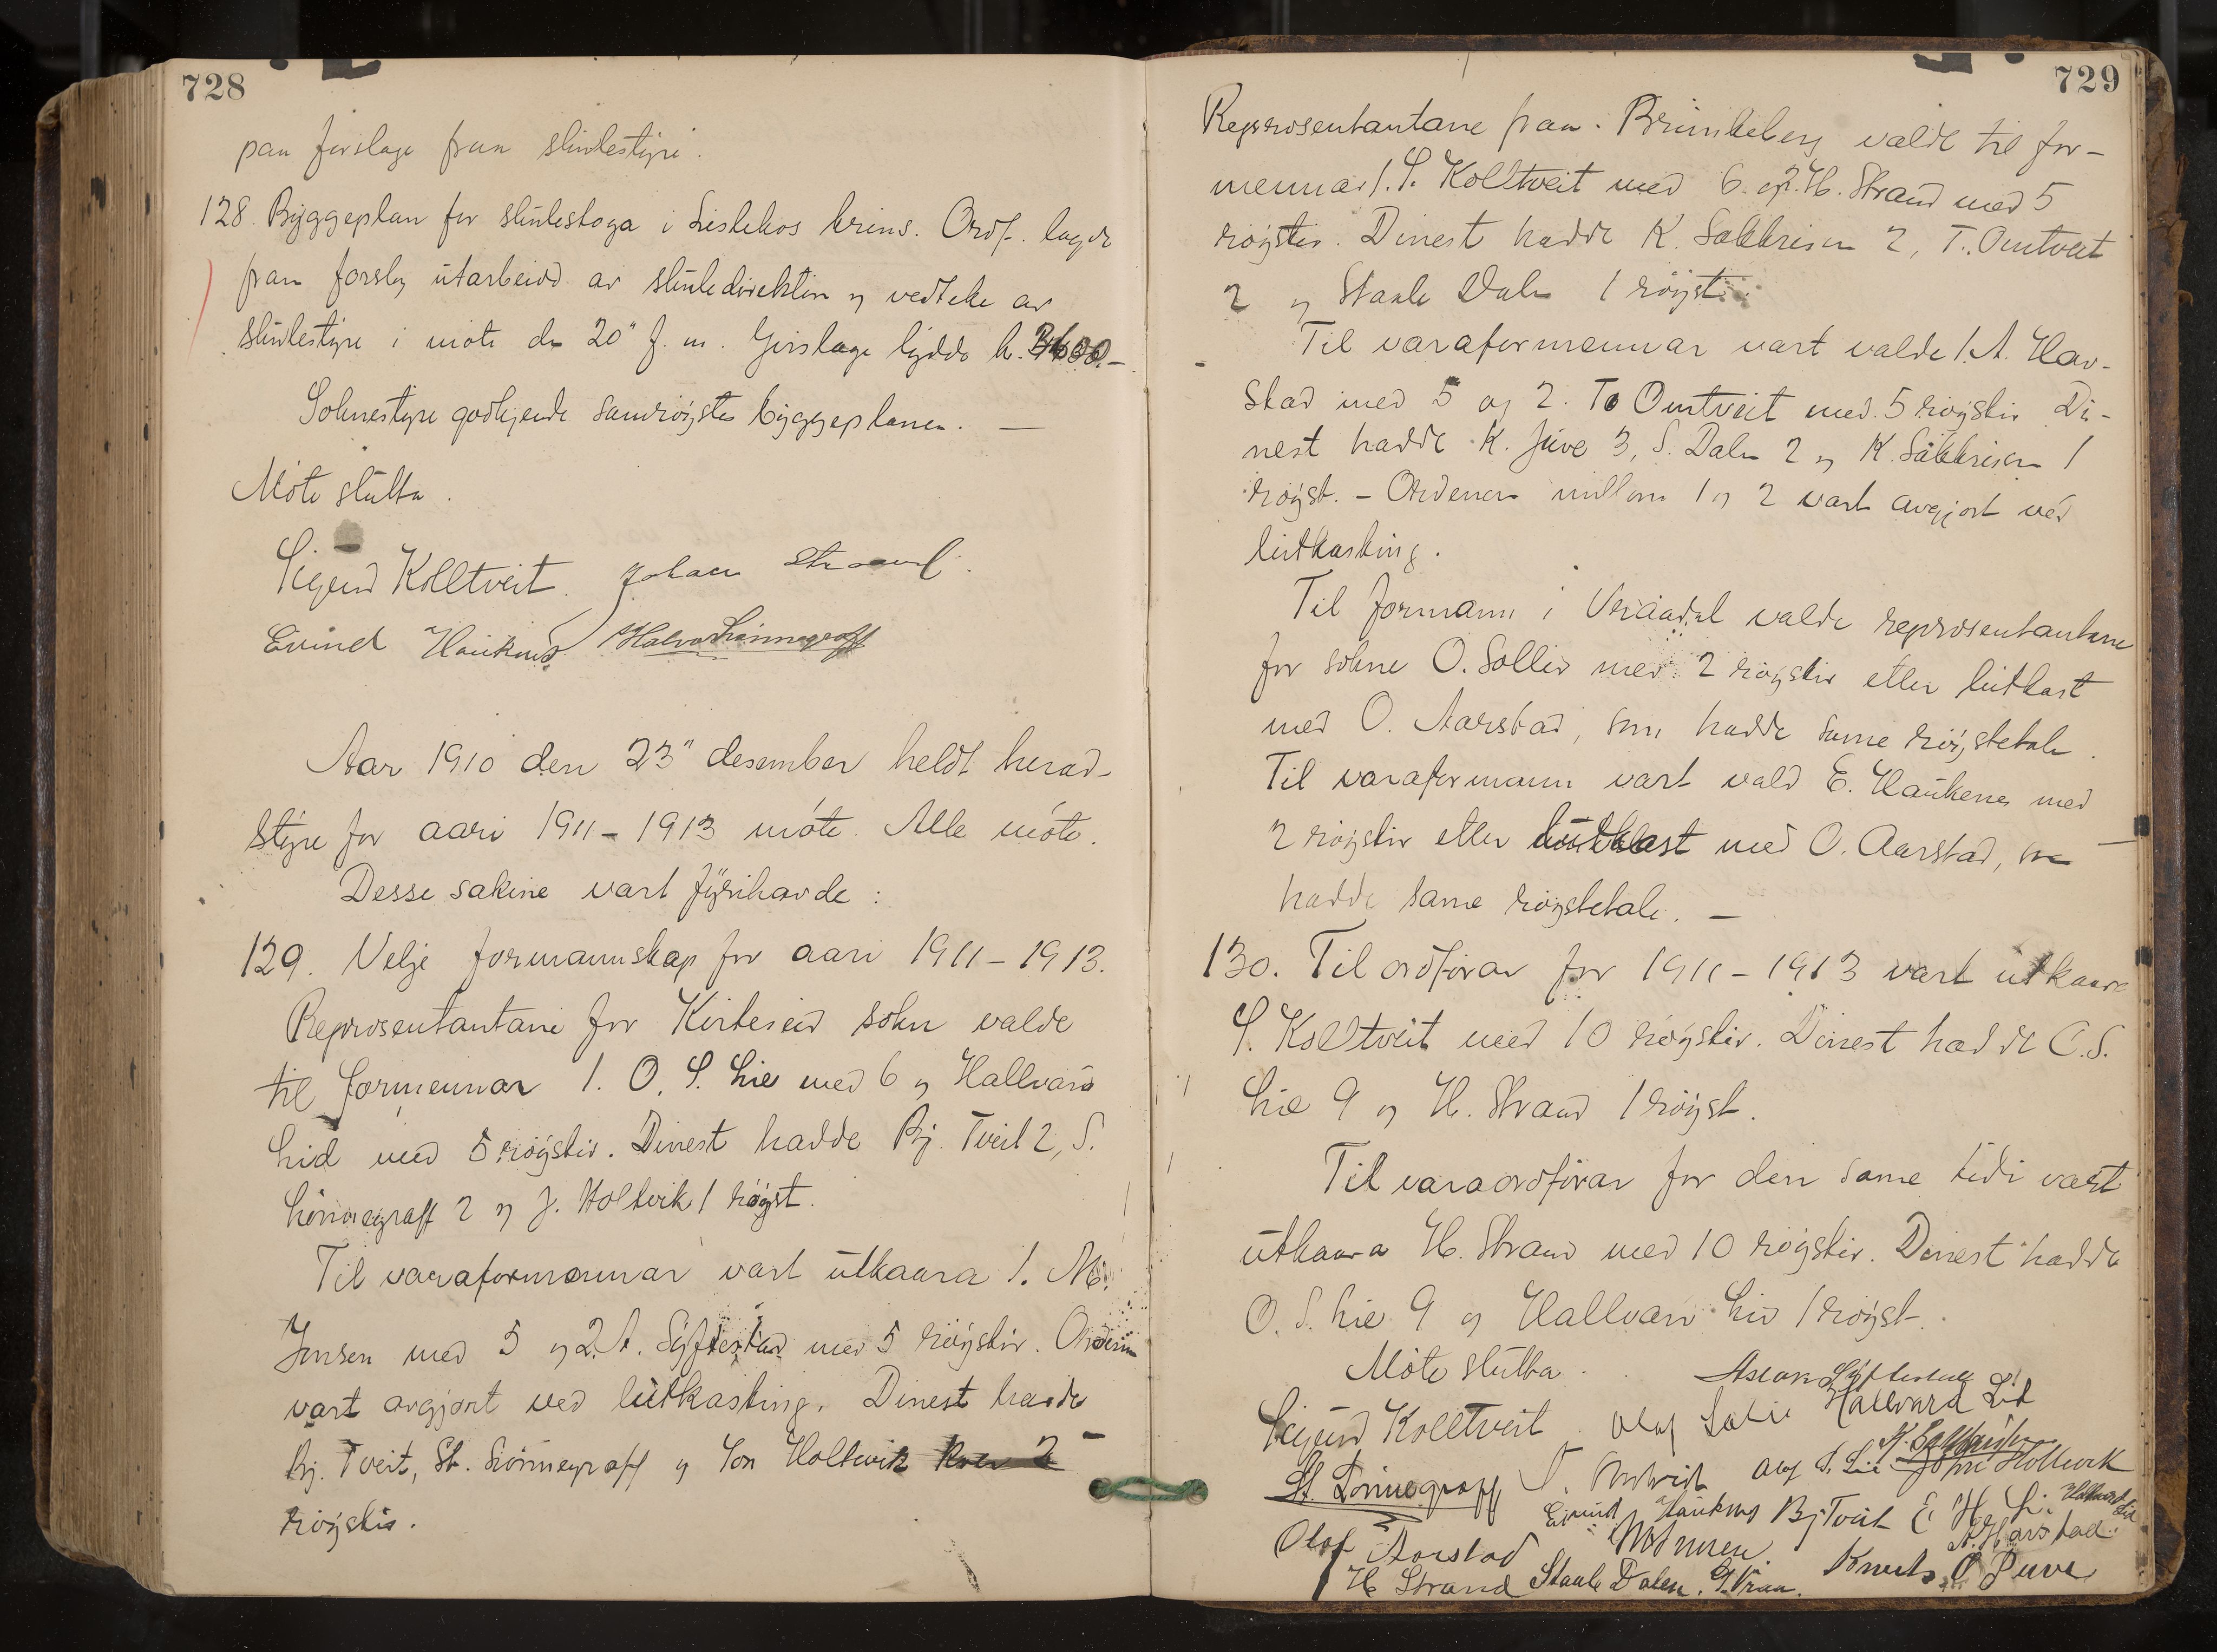 728
paa forslage fraa skulestyre.
128. Byggeplan for skulestoga i Listekos krins. Ordf. lagde
fram forslag utarbeidd av skuledirektören og vedteke av
skulestyre i möte den 20" f. m. Yverslage lydde kr.
Soknestyre godkjende samröystes byggeplanen. —
Möte slutta.
Sigurd Kolltveit. Johan Strand.
Eivind Haukenes Halvor Lönnegraff
Aar 1910 den 23" desember heldt herad-
styre for aari 1911 - 1913 möte. Alle mötte.
Desse sakine vart fyrihavde :
129. Velje formannskap for aari 1911 - 1913.
Representantane for Kirteseid sokn valde
til formennar 1. O. S. Lie med 6 og Hallvard
Lid med 5 röyster. Dinest hadde Bj. Tveit 2, S.
Lönnegraff 2 og J. Holtvik 1 röyst.
Til varaformennar vart utkaara 1. M.
Jensen med 5 og 2. A. Syftestad med 5 röyster. Ordenen
vart avgjort ved lutkasting. Dinest hadde
Bj. Tveit, St. Lönnegraff og Jon Holtvik kver 2
röyster.
729
Representantane fraa Brunkeberg valde til for-
mennar 1. S. Kolltveit med 6 og 2. H. Strand med 5
röyster. Dinest hadde K. Sakkrisen 2, T. Omtveit
2 og Staale Dalen 1 röyst.
Til varaformennar vart valde 1. A. Hav-
stad med 5 og 2. To Omtveit med 5 röyster Di-
nest hadde K. Juve 3, S. Dalen 2 og K. Sakkrisen 1
röyst. - Ordenen millom 1 og 2 vart avgjort ved
lutkasting.
Til formann i Vraadal valde representantane
for sokne O. Sollid med 2 röyster etter lutkast
med O. Aarstad, som hadde same röystetale.
Til varaformann vart vald E. Haukenes med
2 röyster etter lutkast med O. Aarstad, som
hadde same röystetale. —
130. Til ordförar for 1911 - 1913 vart utkaara
S. Kolltveit med 10 röyster. Dinest hadde O. S.
Lie 9 og H. Strand 1 röyst.
Til varaordförar for den same tidi vart
utkaara H. Strand med 10 röyster. Dinest hadde
O. S. Lie 9 og Hallvard Lid 1 röyst.
Möte slutta.
Aslak Syftestad
Sigurd Kolltveit. Olaf Hallvard Lid
St. Lönnegraff T. Omtveit Olaf S. Lie John Holtvik
Eivind Haukenes Bj Tveit E H Li Hallvard Lid
Olaf Aarstad M Jensen A. Havstad
H Strand Staale Dalen. G. Vraa. Knut O Juve